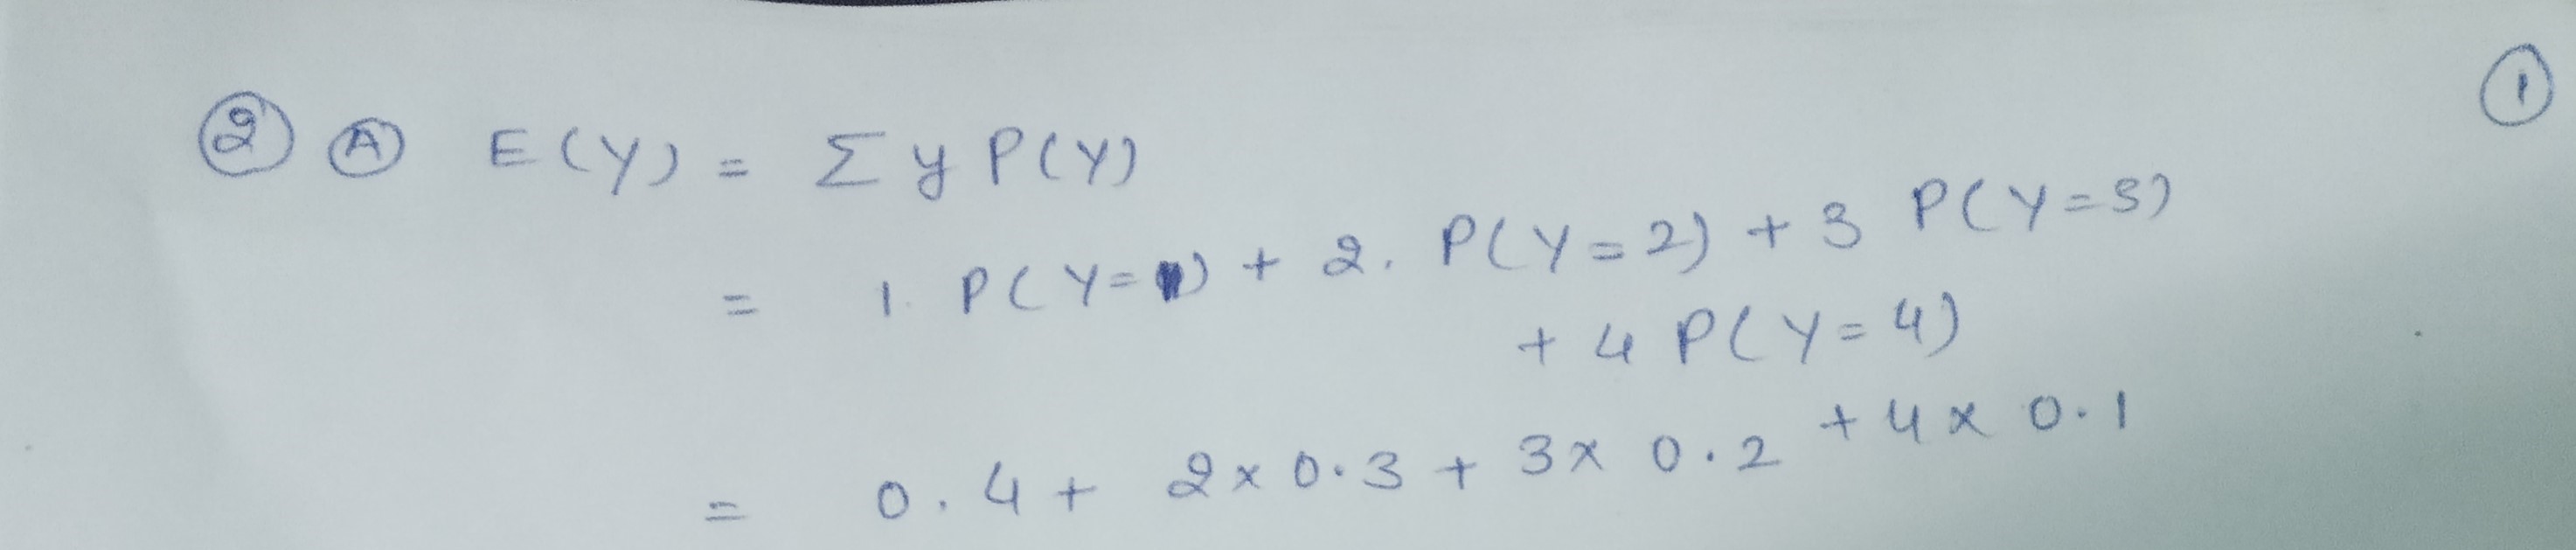 ①
② Ⓐ E(Y) = Σ y P(Y)
= 1. P(Y=1) + 2. P(Y=2) + 3 P(Y=3)
+ 4 P(Y=4)
= 0.4 + 2 x 0.3 + 3 x 0.2 + 4 x 0.1